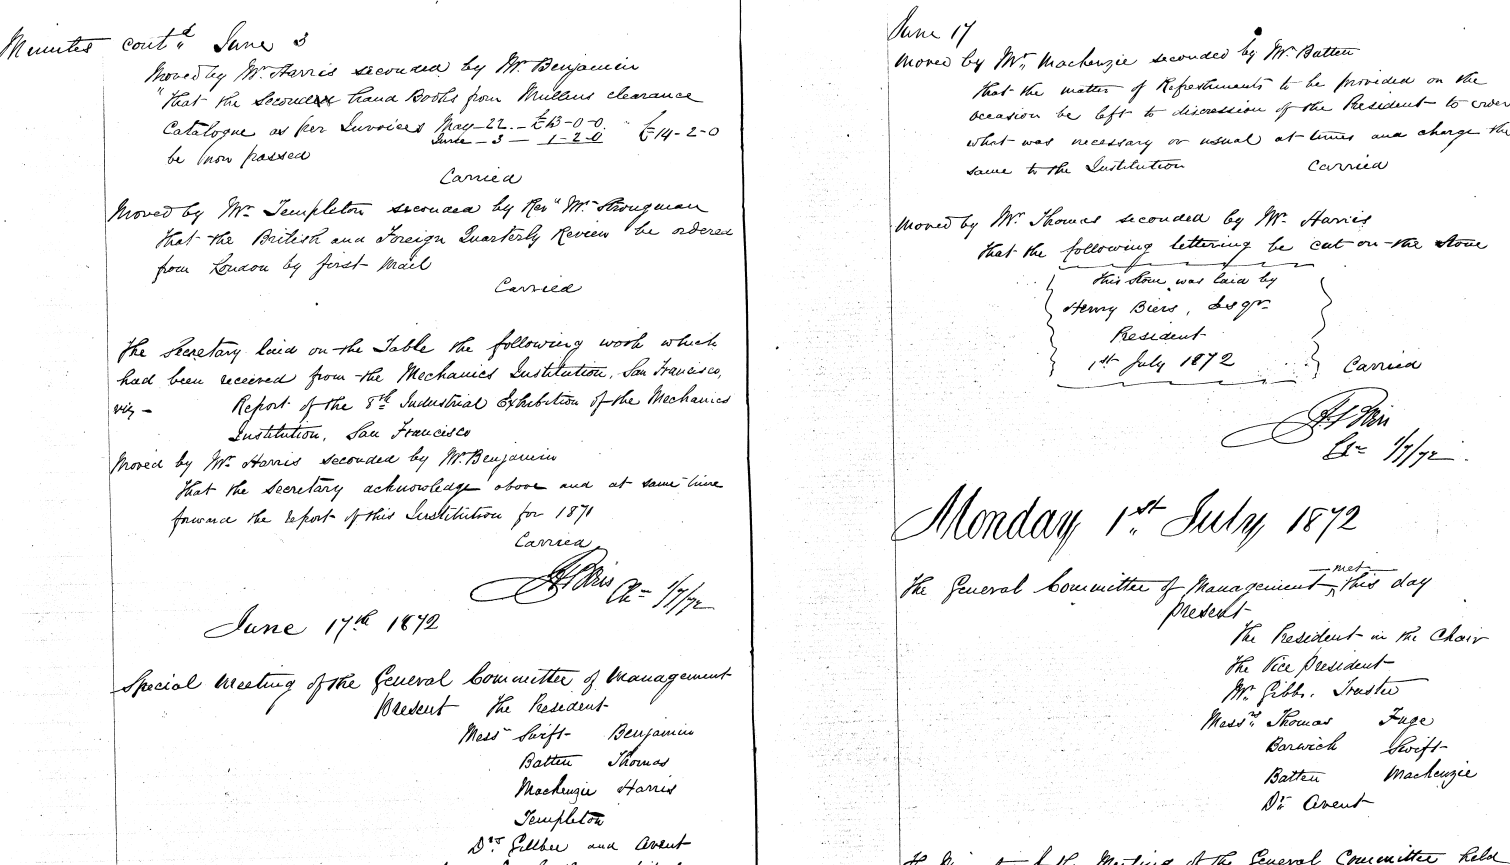 Minutes contd June 3
Moved by Mr. Harris seconded by Mr. Benjamin
"That the second hand Books from Mullens clearance
Catalogue as per Invoices May 22. £13-0-0 £14-2-0
June 3 1-2-0
be now passed
Carried
Moved by Mr. Templeton seconded by Revd Mr. Strongman
That the British and Foreign Quarterly Review be ordered
from London by first Mail
Carried
The Secretary laid on the Table the following work which
had been received from the Mechanics Institution, San Francisco,
viz - Report of the 8th Industrial Exhibition of the Mechanics
Institution, San Francisco
Moved by Mr. Harris seconded by Mr. Benjamin
That the Secretary acknowledge above and at same time
forward the report of this Institution for 1871
Carried
1/7/72
June 17th 1872
Special Meeting of the General Committee of Management
Present The President
Messrs Swift Benjamin
Batten Thomas
Mackenzie Harris
Templeton
Drs Gibbee and Avent
June 17
Moved by Mr. Mackenzie seconded by Mr. Batten
That the matter of Refreshments to be provided on the
occasion be left to discression of the President to order
what was necessary or usual at times and charge the
same to the Institution Carried
Moved by Mr. Thomas seconded by Mr. Harris
That the following lettering be cut on the Stone
This Stone was laid by
Henry Biers, Esqr.
President
1st July 1872 Carried
1/7/72
Monday 1st July 1872
The General Committee of Management met this day
Present
The President in the Chair
The Vice President
Mr. Gibbs. Trustee
Messrs Thomas Fuge
Barwick Swift
Batten Mackenzie
Dr. Avent
Meeting of the General Committee held